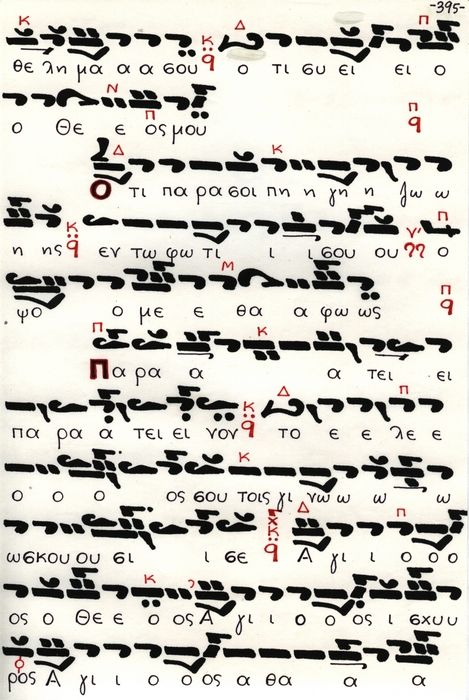 -395-
Κ Κ Δ Π
θε λη μα α α σου ο τι συ ει ει ο
Ν Π Π
ο Θε ε ος μου
Δ Κ
Ο τι πα ρα σοι πη η γη η ζω ω
Κ Ν Π
η ης εν τω φω τι ι ι σου ου ο
Μ Π
ψο ο με ε θα α φω ως
Π Κ
Πα ρα α α τει ει
Κ Δ Π
πα ρα α τει ει νον το ε ε λε ε
Κ
ο ο ο ος σου τοις γι νω ω ω ω
Κ Δ Π
ωσκου ου σι ι σε Α γι ι ο ο ο
Κ
ος ο Θε ε ο ος Α γι ι ο ο ος ι σχυυ
ρος Α γι ι ο ο ος α θα α α